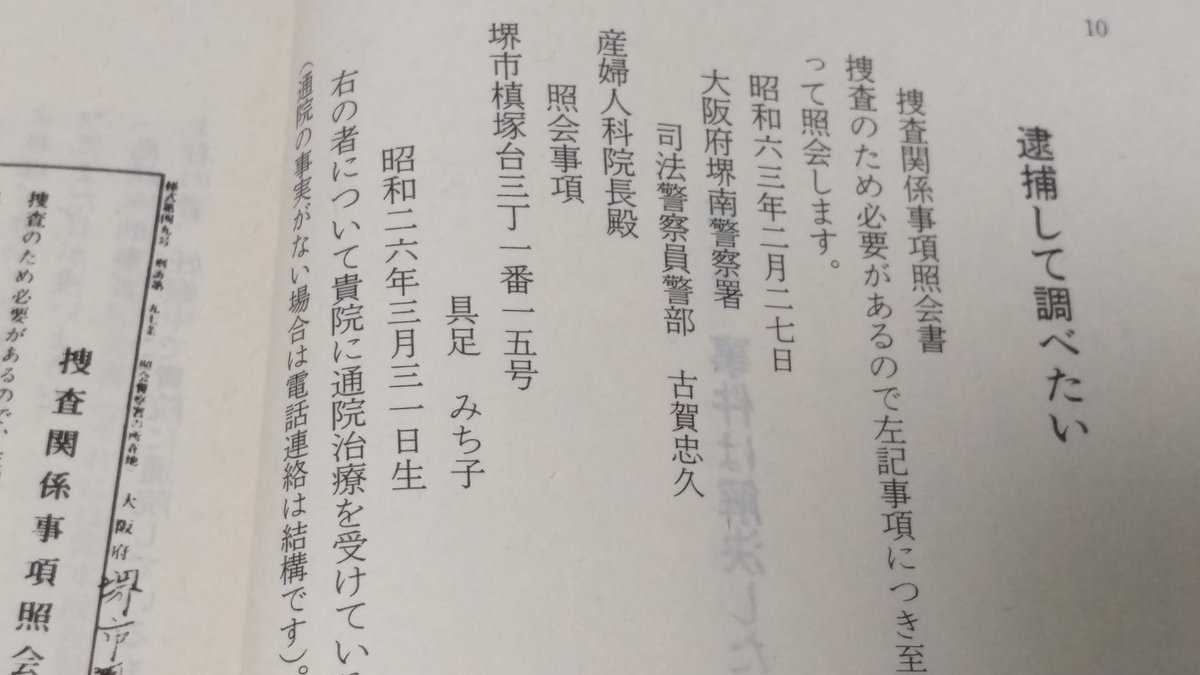 10
逮捕して調べたい
捜査関係事項照会書
捜査のため必要があるので左記事項につき至
って照会します。
昭和六三年二月二七日
大阪府堺南警察署
司法警察員警部 古賀忠久
産婦人科院長殿
照会事項
堺市槙塚台三丁一番一五号
具足 みち子
昭和二六年三月三一日生
右の者について貴院に通院治療を受けてい
(通院の事実がない場合は電話連絡は結構です)。
大阪府 堺市
捜査関係事項照会
捜査のため必要があるので、
事件は解決した